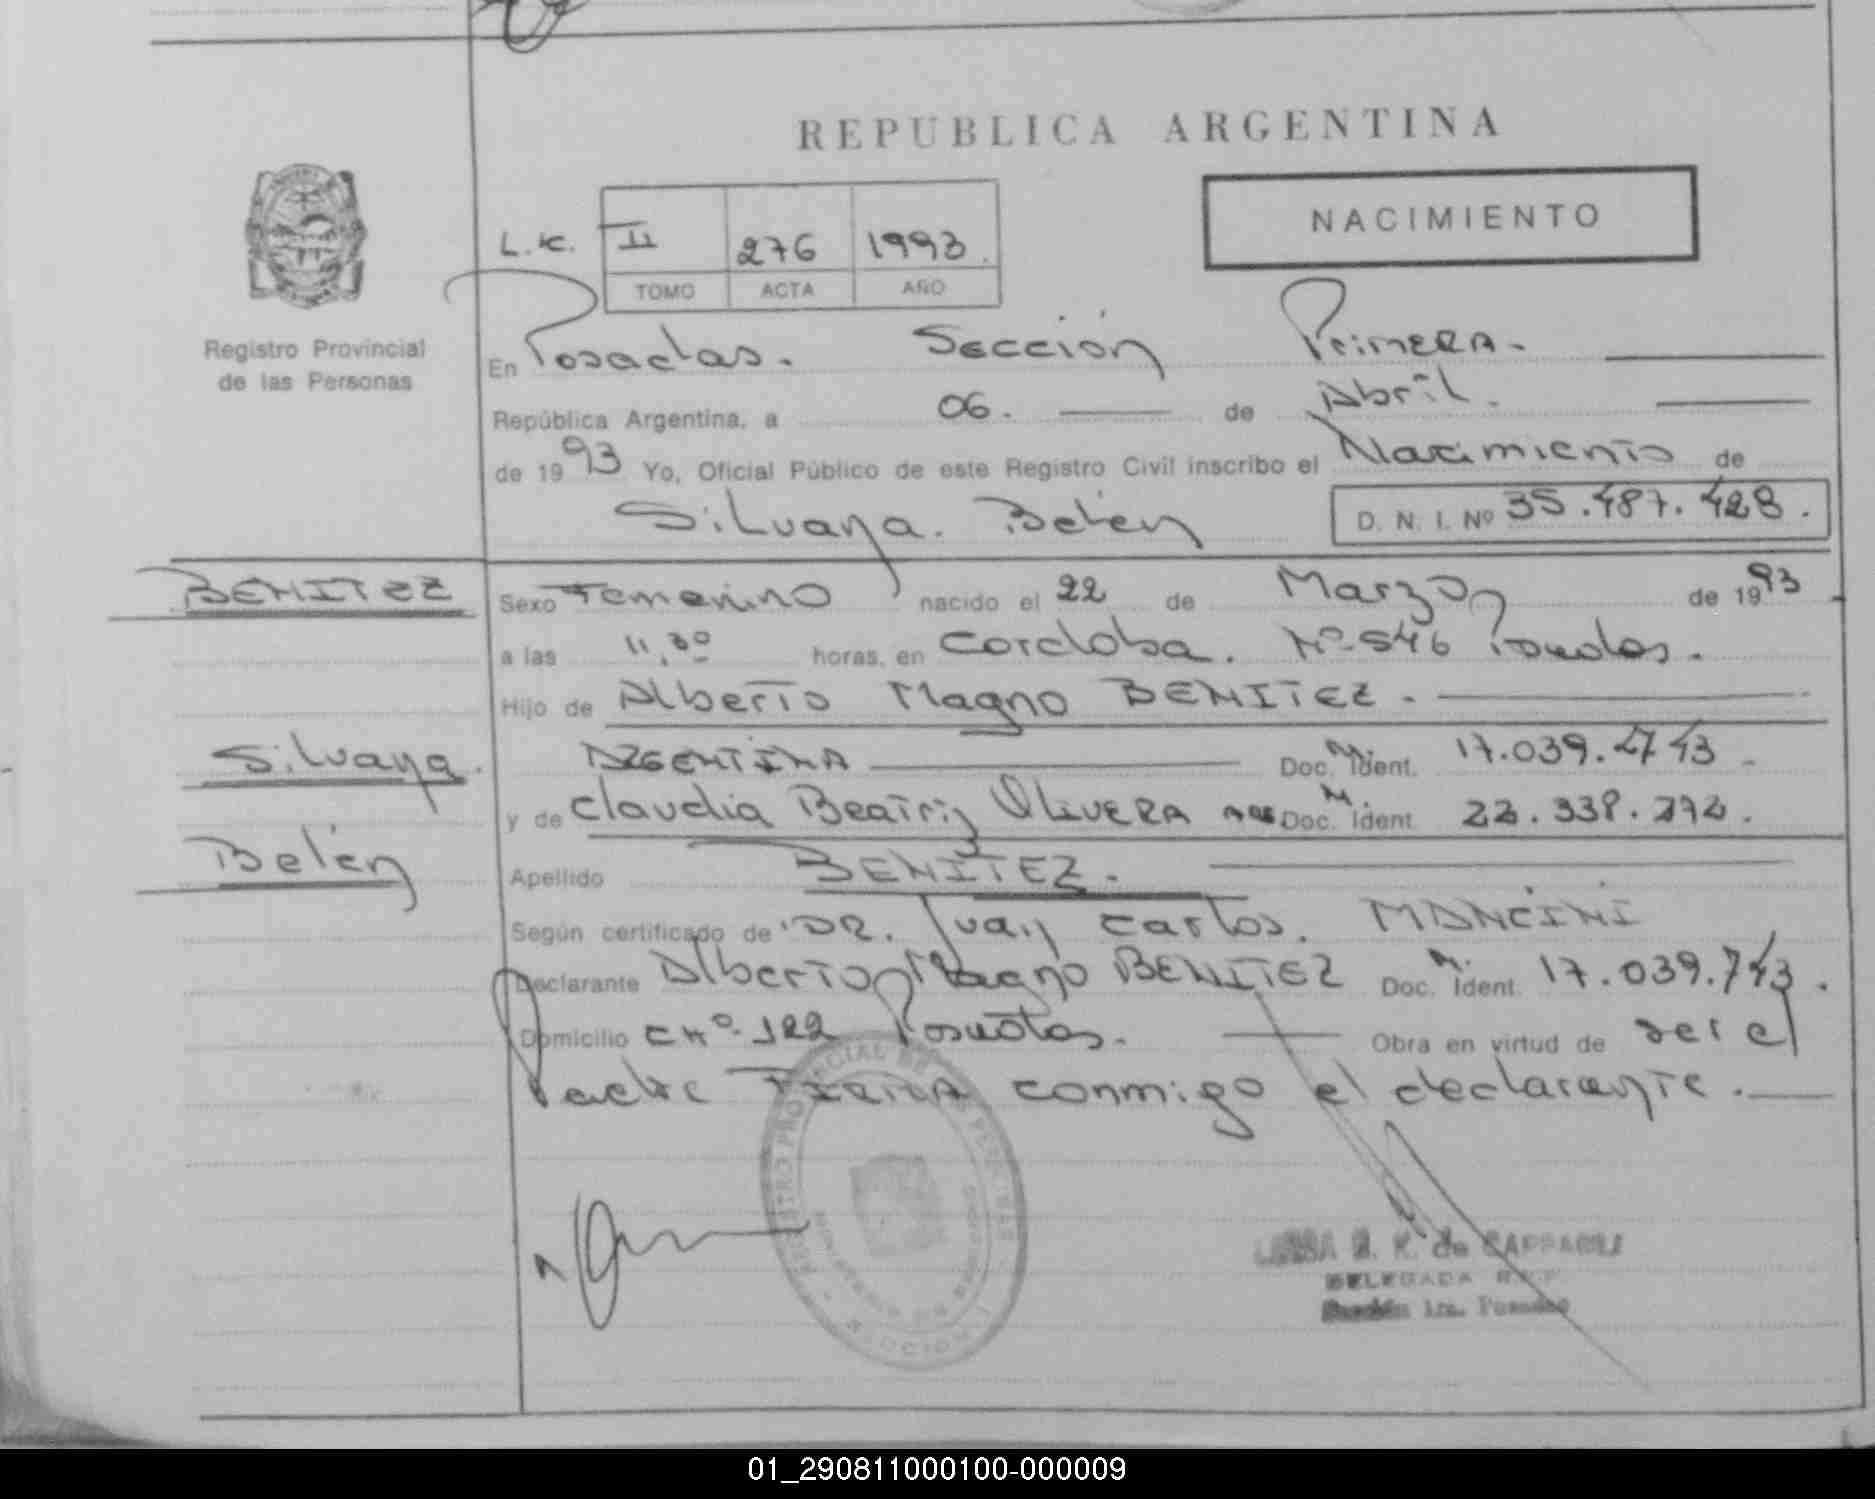 REPUBLICA ARGENTINA
NACIMIENTO
L.C. II 276 1993.
TOMO ACTA AÑO
Registro Provincial
de las Personas
En Posadas. Sección Primera.
República Argentina, a 06. de Abril.
de 1993 Yo, Oficial Público de este Registro Civil inscribo el Nacimiento de
Silvana. Belén D. N. I. Nº 35.487.428.
BENITEZ
Sexo Femenino nacido el 22 de Marzo de 1993
a las 11,30 horas, en Cordoba. Nº 546 Posadas.
Hijo de Alberto Magno BENITEZ.
Silvana.
ARGENTINA Doc. Ident. 17.039.743
y de Claudia Beatriz OLIVERA Doc. Ident. 22.338.272.
Belén
Apellido BENITEZ.
Según certificado de DR. Juan Carlos. MANCINI
Declarante Alberto Magno BENITEZ Doc. Ident. 17.039.743.
Domicilio CHº. 122 Posadas. Obra en virtud de ser el
Padre FIRMA conmigo el declarante.
REGISTRO PROVINCIAL DE LAS PERSONAS
DELEGADA R.P.P.
Sección 1ra. Posadas
01_290811000100-000009